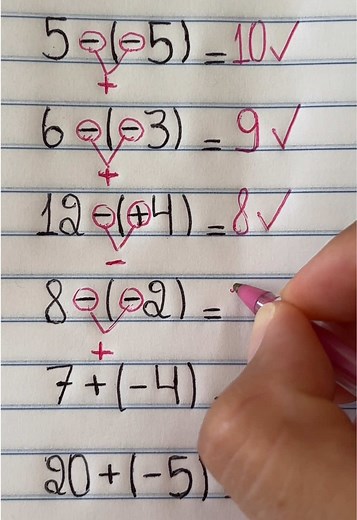 5 - (-5) = 10 ✓
+
6 - (-3) = 9 ✓
+
12 - (+4) = 8 ✓
-
8 - (-2) =
+
7 + (-4)
20 + (-5)